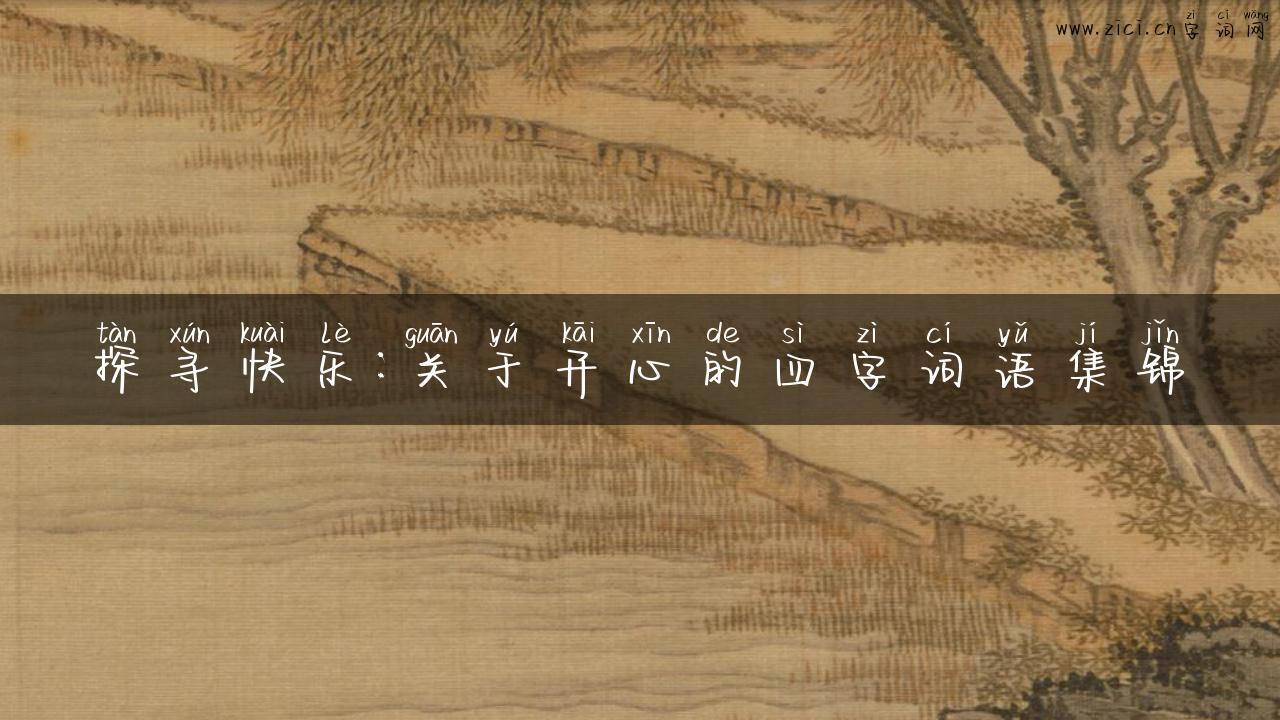 zì cí wǎng
www.zici.cn字词网
tàn xún kuài lè guān yú kāi xīn de sì zì cí yǔ jí jǐn
探寻快乐：关于开心的四字词语集锦